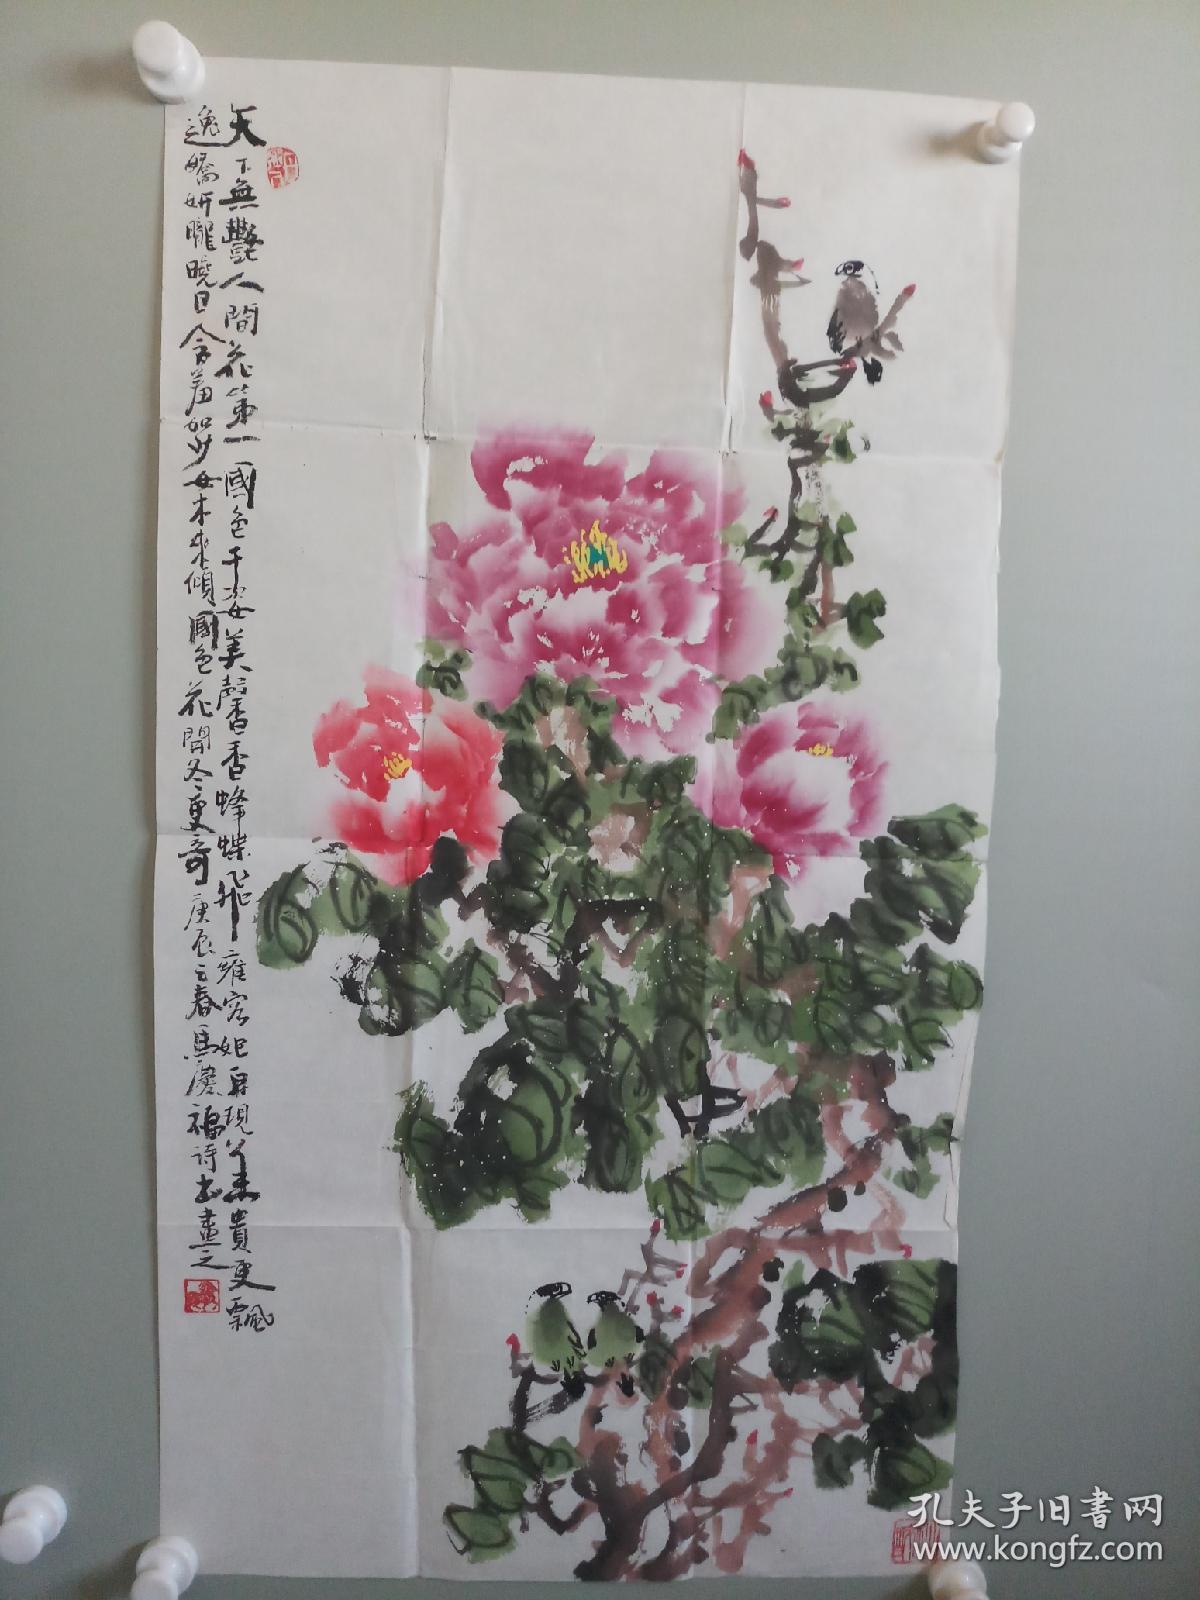 天下無艷人間花第一國色千姿美馨香蜂蝶飛雍容妃再現華貴更飄
逸嬌妍朧曉日含羞如少女木來傾國色花開冬更奇庚辰之春馬慶福詩书畫之
孔夫子旧書网
www.kongfz.com